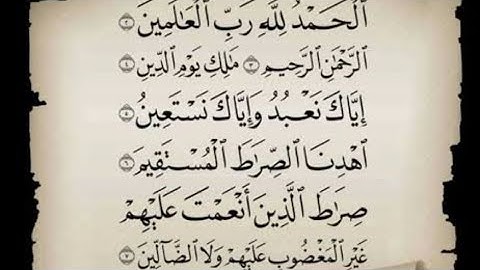 ٱلْحَمْدُ لِلَّهِ رَبِّ ٱلْعَـٰلَمِينَ ٢
ٱلرَّحْمَـٰنِ ٱلرَّحِيمِ ٣ مَـٰلِكِ يَوْمِ ٱلدِّينِ ٤
إِيَّاكَ نَعْبُدُ وَإِيَّاكَ نَسْتَعِينُ ٥
ٱهْدِنَا ٱلصِّرَٰطَ ٱلْمُسْتَقِيمَ ٦
صِرَٰطَ ٱلَّذِينَ أَنْعَمْتَ عَلَيْهِمْ
غَيْرِ ٱلْمَغْضُوبِ عَلَيْهِمْ وَلَا ٱلضَّآلِّينَ ٧